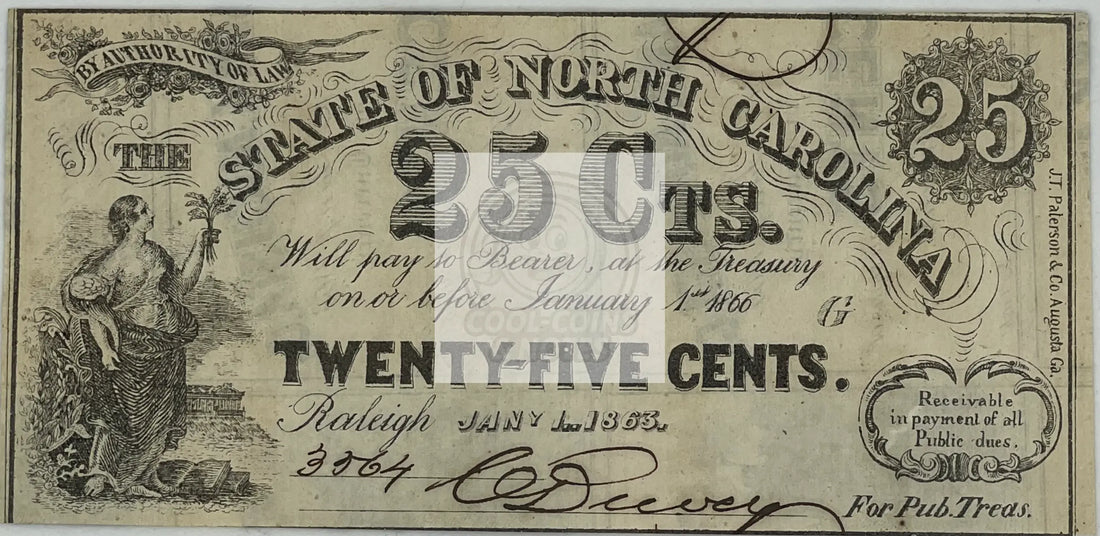 BY AUTHORITY OF LAW
THE
STATE OF NORTH CAROLINA
25
25 CTS.
Will pay to Bearer, at the Treasury
on or before January 1st 1866
G
COOL-COINS
TWENTY-FIVE CENTS.
Raleigh JANY 1.. 1863.
3564
For Pub. Treas.
Receivable
in payment of all
Public dues.
J.T. Paterson & Co. Augusta Ga.